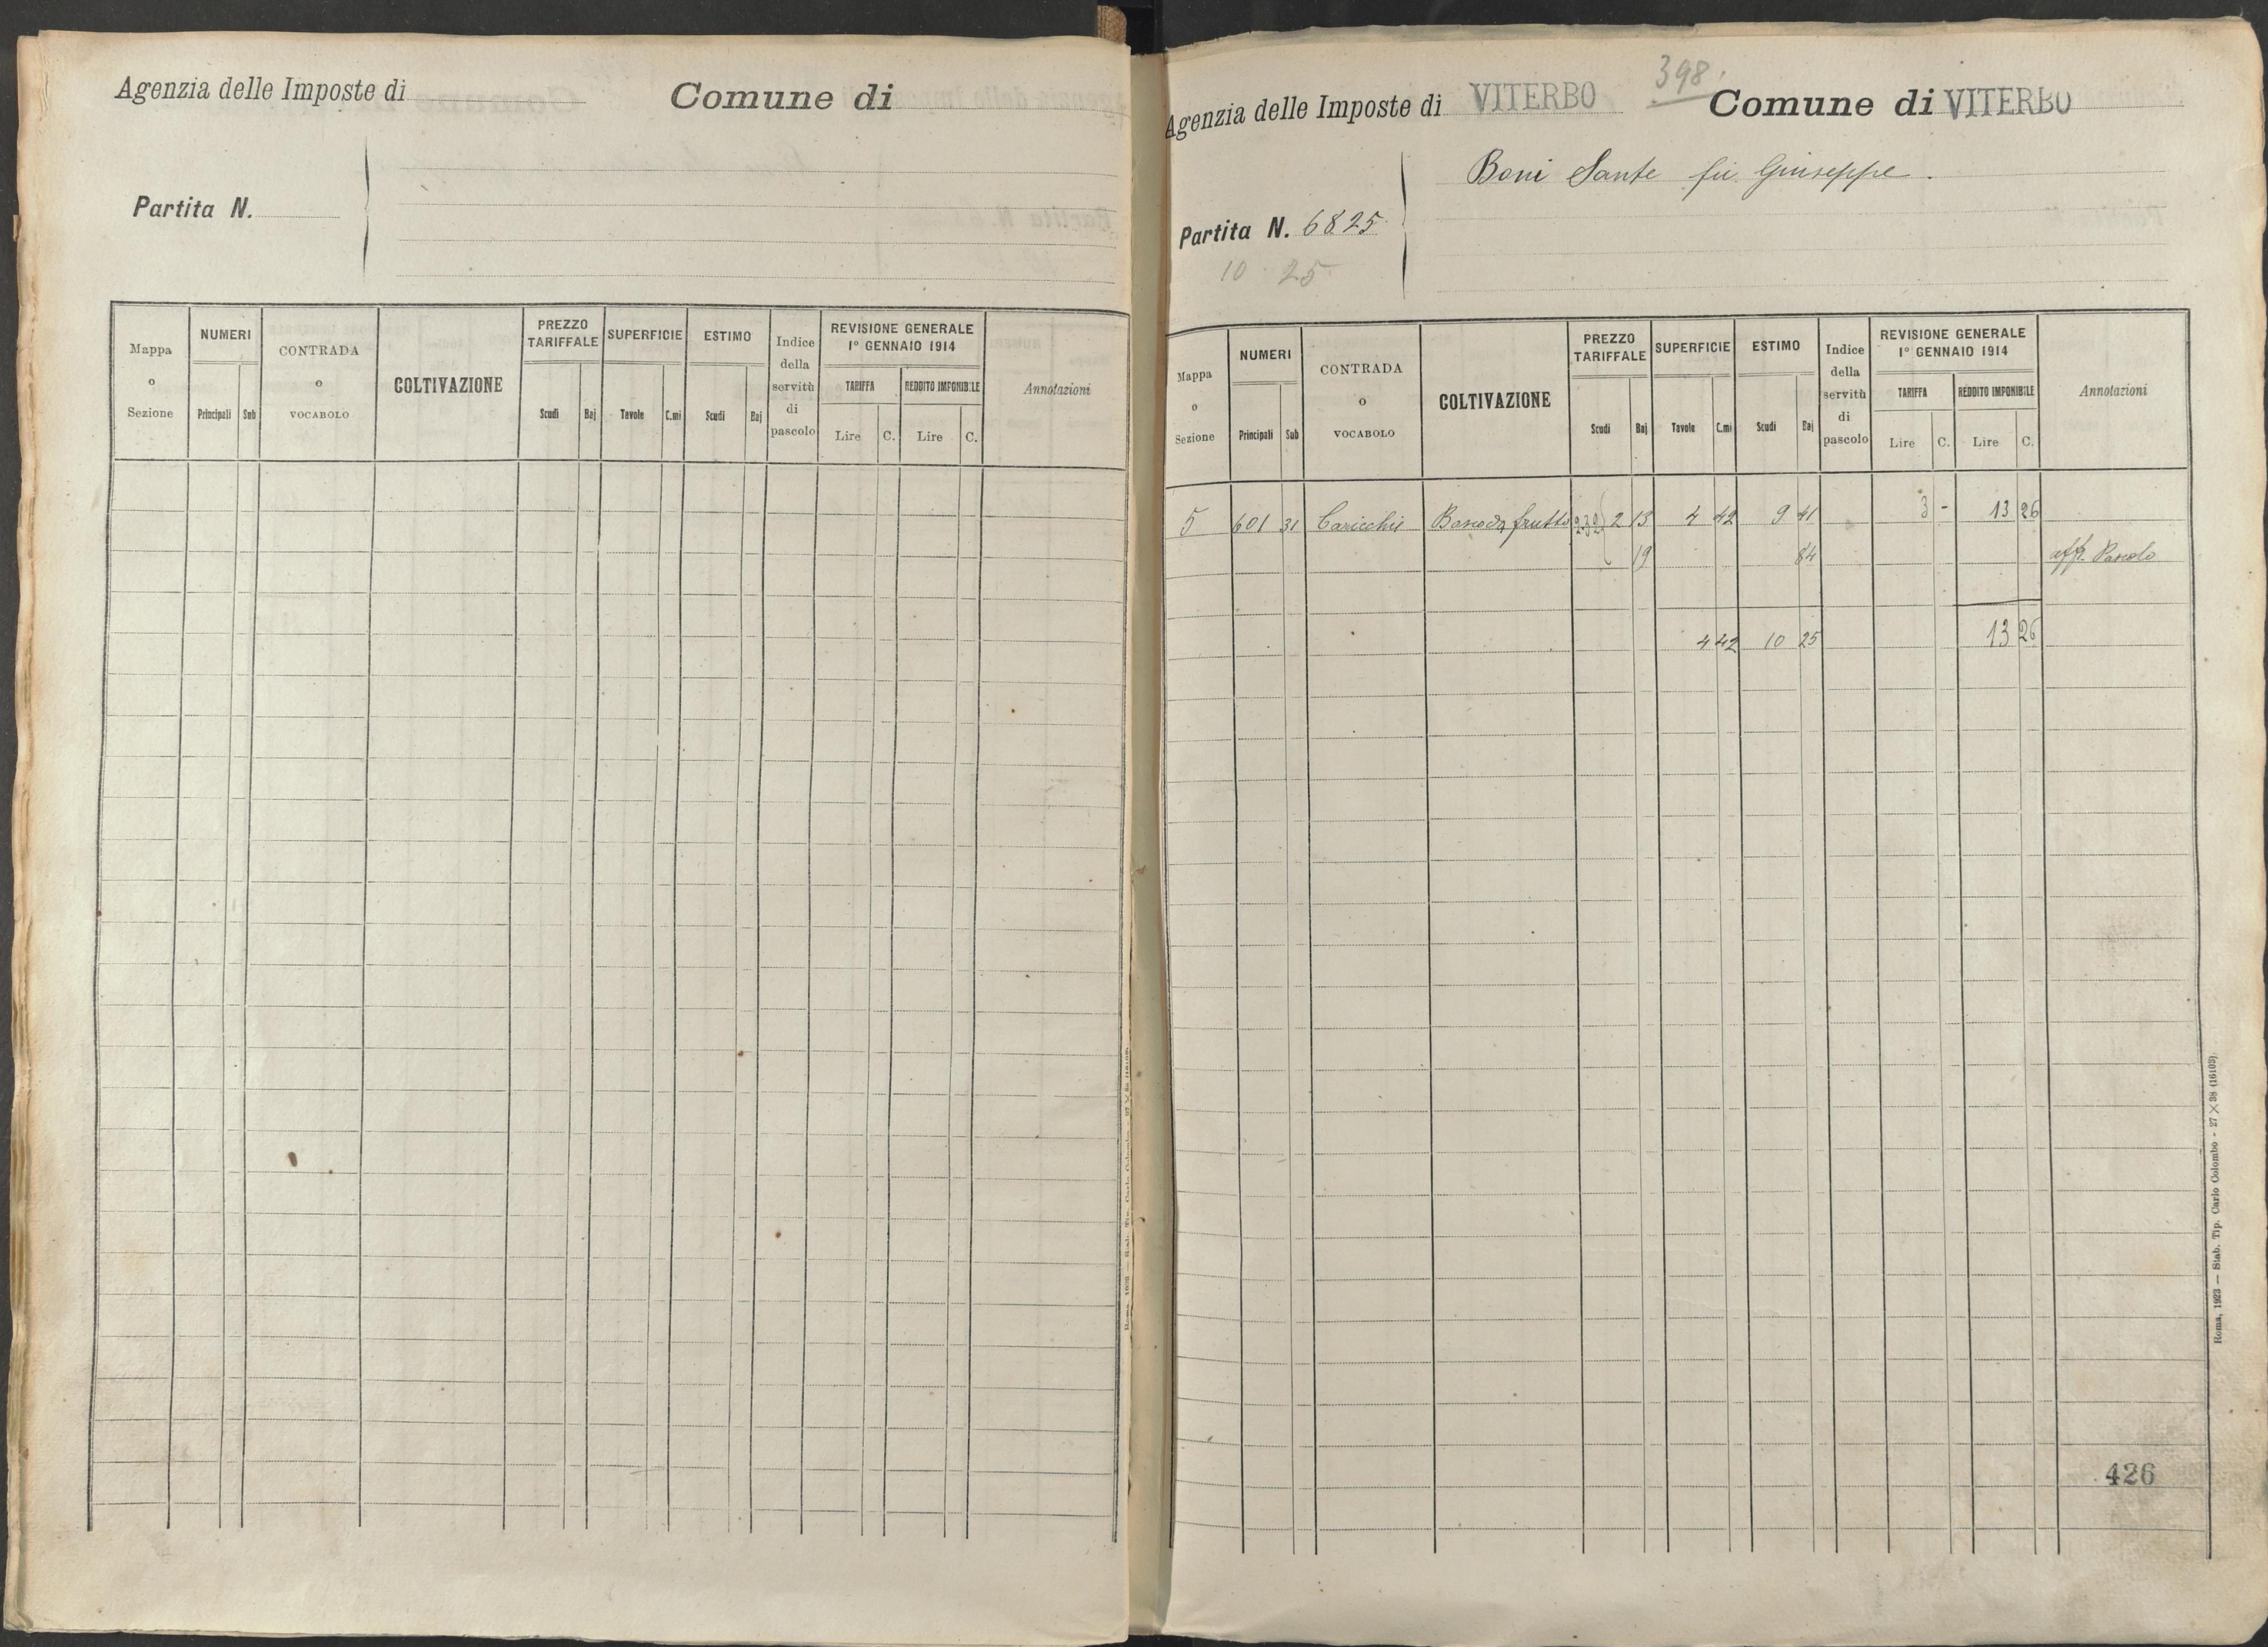 Agenzia delle Imposte di
Comune di
Partita N.
Mappa o Sezione
NUMERI
Principali Sub
CONTRADA o VOCABOLO
COLTIVAZIONE
PREZZO TARIFFALE
Scudi Baj
SUPERFICIE
Tavole C.mi
ESTIMO
Scudi Baj
Indice della servitù di pascolo
REVISIONE GENERALE
1º GENNAIO 1914
TARIFFA REDDITO IMPONIBILE
Lire C. Lire C.
Annotazioni
398
Agenzia delle Imposte di VITERBO
Comune di VITERBO
Boni Sante fu Giuseppe.
Partita N. 6825
10 25
Mappa o Sezione
NUMERI
Principali Sub
CONTRADA o VOCABOLO
COLTIVAZIONE
PREZZO TARIFFALE
Scudi Baj
SUPERFICIE
Tavole C.mi
ESTIMO
Scudi Baj
Indice della servitù di pascolo
REVISIONE GENERALE
1º GENNAIO 1914
TARIFFA REDDITO IMPONIBILE
Lire C. Lire C.
Annotazioni
5 601 31 da frutto 232 2 13 4 42 9 41 3 - 13 26
19 84 aff. Pascolo
4 42 10 25 13 26
Roma, 1923 — Stab. Tip. Carlo Colombo - 27 × 38 (16103).
426